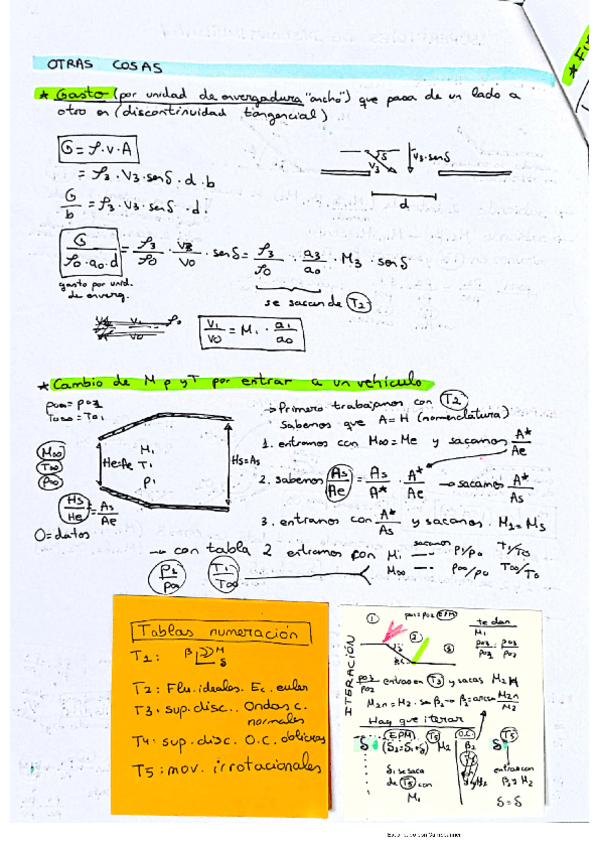 OTRAS COSAS
* Gasto (por unidad de envergadura "ancho") que pasa de un lado a
otro en (discontinuidad tangencial)
G = ρ·v·A
= ρ3·V3·senδ·d·b
G/b = ρ3·V3·senδ·d.
δ
V3
V3·senδ
d
G/(ρ0·a0·d) = ρ3/ρ0 · V3/V0 · senδ = ρ3/ρ0 · a3/a0 · M3 · senδ
gasto por unid.
de enverg.
se sacan de T2
V1/V0 = M1 · a1/a0
* Cambio de M p y T por entrar a un vehículo
T0∞ = T01
M∞
T∞
p∞
Hs/He = As/Ae
O = datos
He=Ae
M1
T1
p1
Hs=As
→ Primero trabajamos con T2
Sabemos que A = H (nomenclatura)
1. entramos con M∞ = Me y sacamos A*/Ae
2. sabemos As/Ae = As/A* · A*/Ae → sacamos A*/As
3. entramos con A*/As y sacamos M1 = Ms
→ con tabla 2 entramos con M1 sacamos p1/p0 T1/T0
M∞ p∞/p0 T∞/T0
p1/p∞ T1/T∞
Tablas numeración
T1: β M δ
T2: Flu. ideales. Ec. euler
T3: sup. disc.. Ondas c.
normales
T4: sup. disc. O.C. oblicuas
T5: mov. irrotacionales
ITERACIÓN
1
2
3
te dan
M1
entras en T3 y sacas
Hay que iterar
EPM
T5
M2
O.C.
β2
T5
δ1 se saca
de T5 con
M1
entras con
β2 y M2
δ = δ